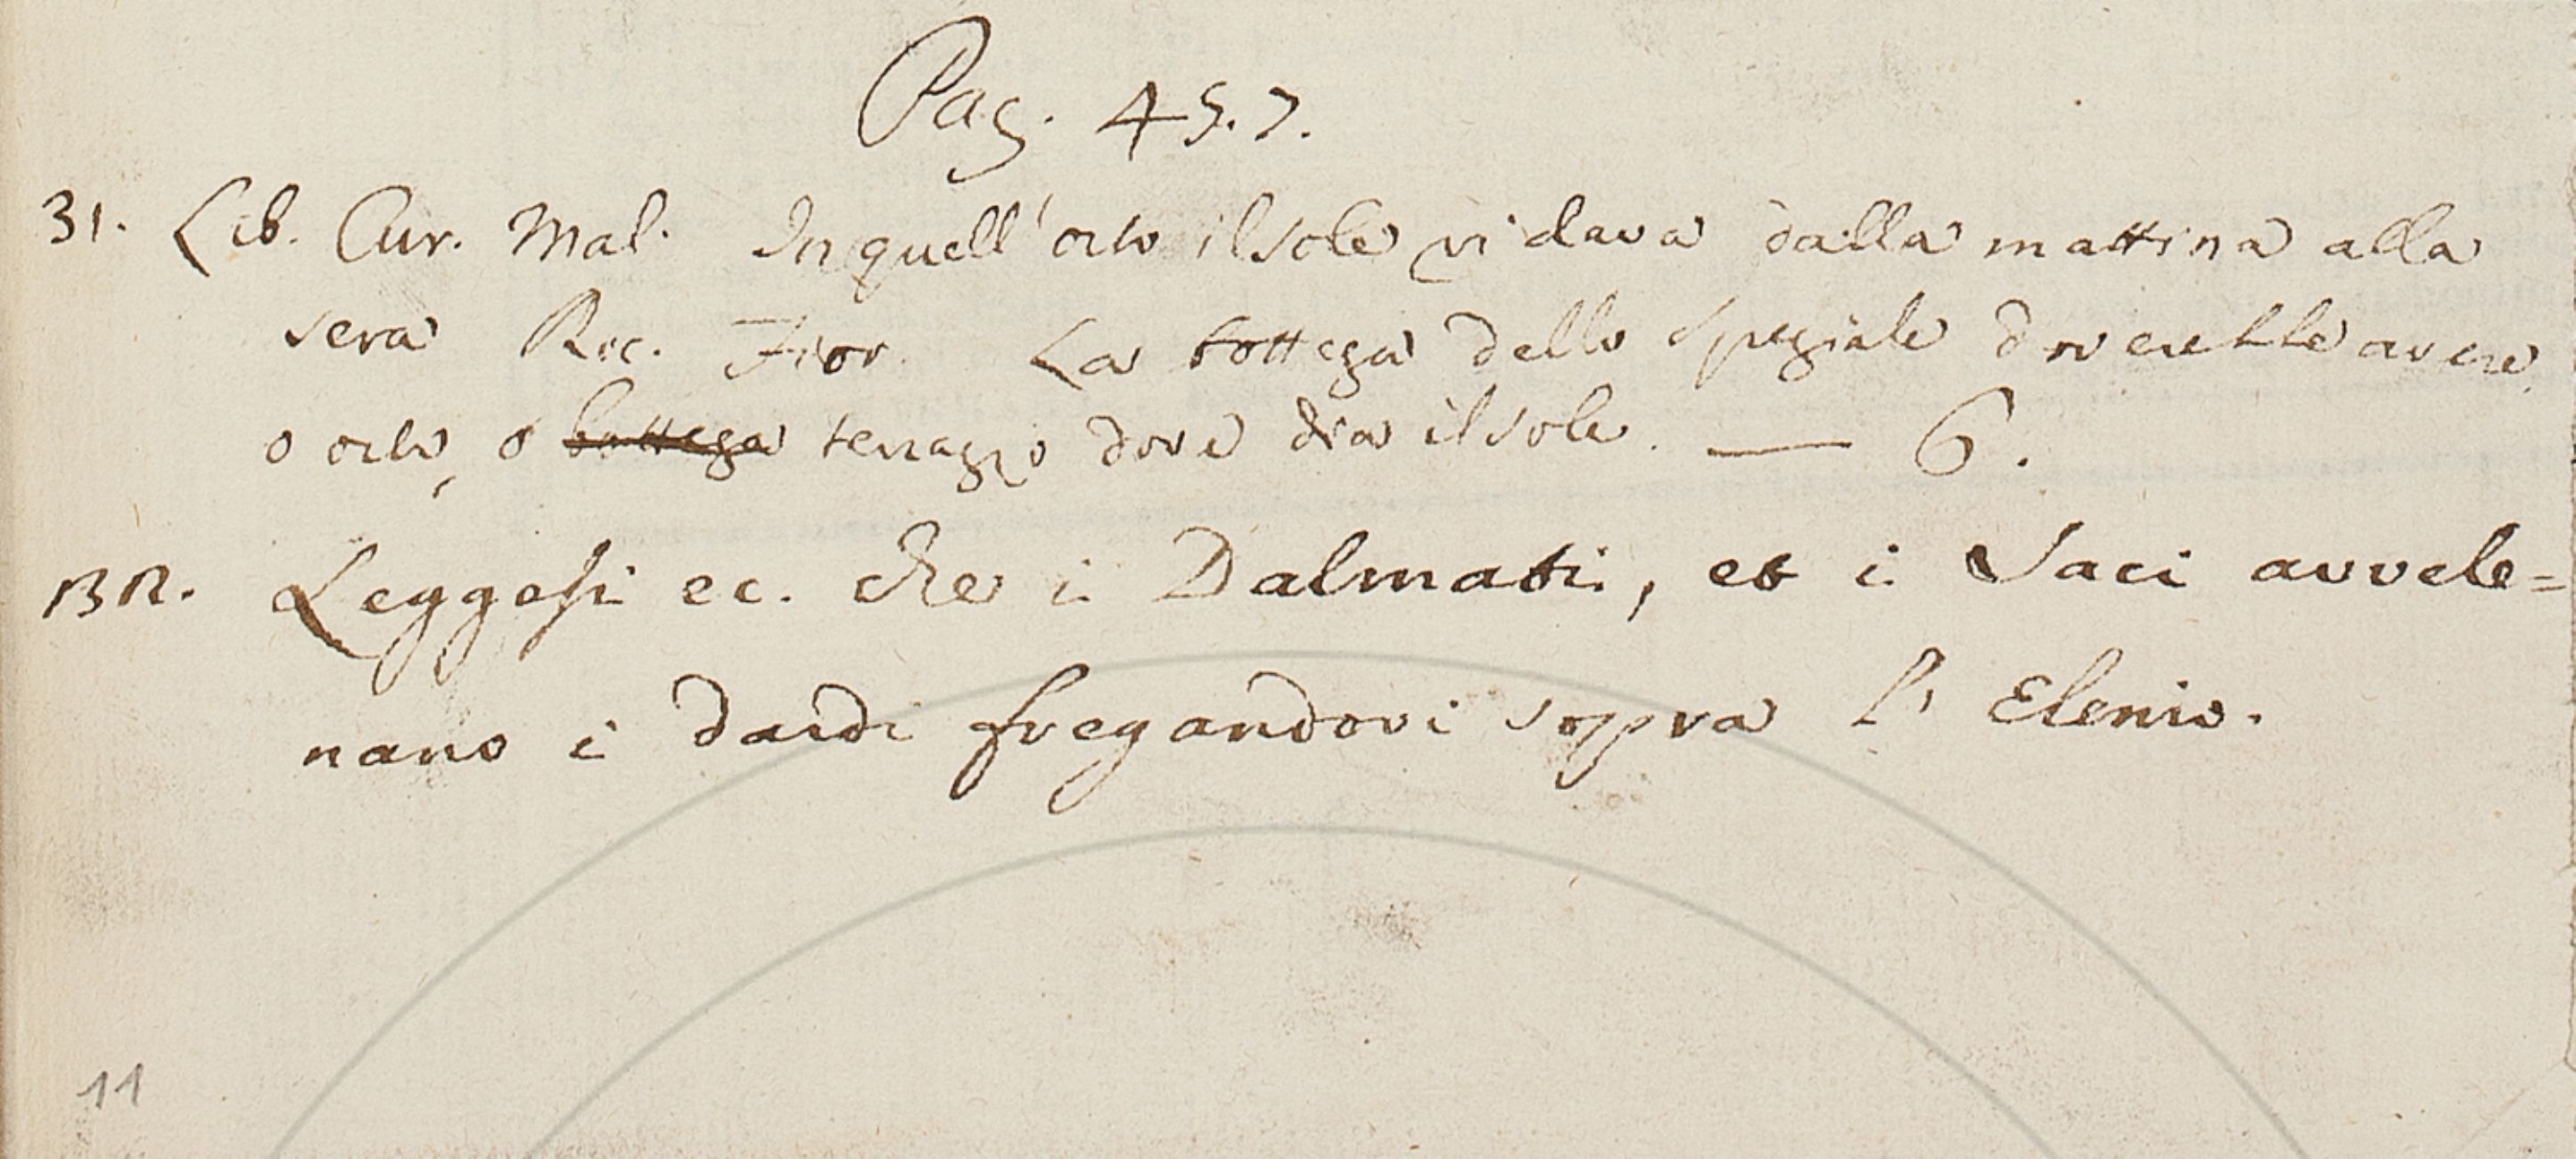 Pag. 45.7.
31. Lib. Cur. Mal. In quell' orto il sole vi dava dalla mattina alla
sera Ric. Fior. La bottega dello speziale dovrebbe avere
o orto, o bottega terrazzo dove dia il sole. — 6.
BR. Leggesi ec. che i Dalmati, et i Saci avvele=
nano i dardi fregandovi sopra l' Elenio.
11